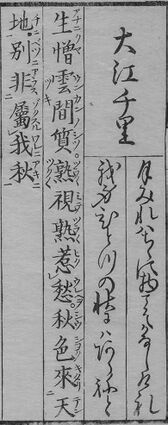 大江千里
月みれはちゝに物こそかなしけれ
我身ひとつの秋にはあらねと
生憎雲間質熟視熟惹愁秋色來天
地別非屬我秋